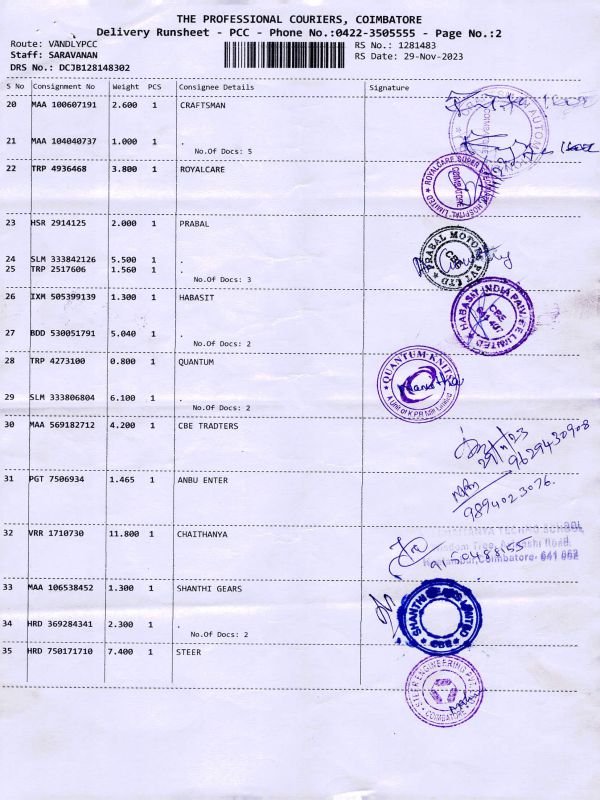 THE PROFESSIONAL COURIERS, COIMBATORE
Delivery Runsheet - PCC - Phone No.:0422-3505555 - Page No.:2
Route: VANDLYPCC
RS No.: 1281483
Staff: SARAVANAN
RS Date: 29-Nov-2023
DRS No.: DCJB128148302
S No Consignment No Weight PCS Consignee Details Signature
20 MAA 100607191 2.600 1 CRAFTSMAN
21 MAA 104040737 1.000 1 .
No.Of Docs: 5
22 TRP 4936468 3.800 1 ROYALCARE
ROYALCARE SUPER HOSPITAL LIMITED
COIMBATORE
23 HSR 2914125 2.000 1 PRABAL
PRABAL MOTORS PVT LTD
CBE
24 SLM 333842126 5.500 1 .
25 TRP 2517606 1.560 1 .
No.Of Docs: 3
26 IXM 505399139 1.300 1 HABASIT
HABASIT INDIA PRIVATE LIMITED
CBE
27 BDD 530051791 5.040 1 .
No.Of Docs: 2
28 TRP 4273100 0.800 1 QUANTUM
QUANTUM KNITS
A Unit of K P R Mill Limited
29 SLM 333806804 6.100 1 .
No.Of Docs: 2
30 MAA 569182712 4.200 1 CBE TRADTERS
29/11/23
9629430908
31 PGT 7506934 1.465 1 ANBU ENTER
9894023076.
32 VRR 1710730 11.800 1 CHAITHANYA
9150488155
Coimbatore- 641 062
33 MAA 106538452 1.300 1 SHANTHI GEARS
SHANTHI GEARS LIMITED
CBE
34 HRD 369284341 2.300 1 .
No.Of Docs: 2
35 HRD 750171710 7.400 1 STEER
STEER ENGINEERING PVT
COIMBATORE